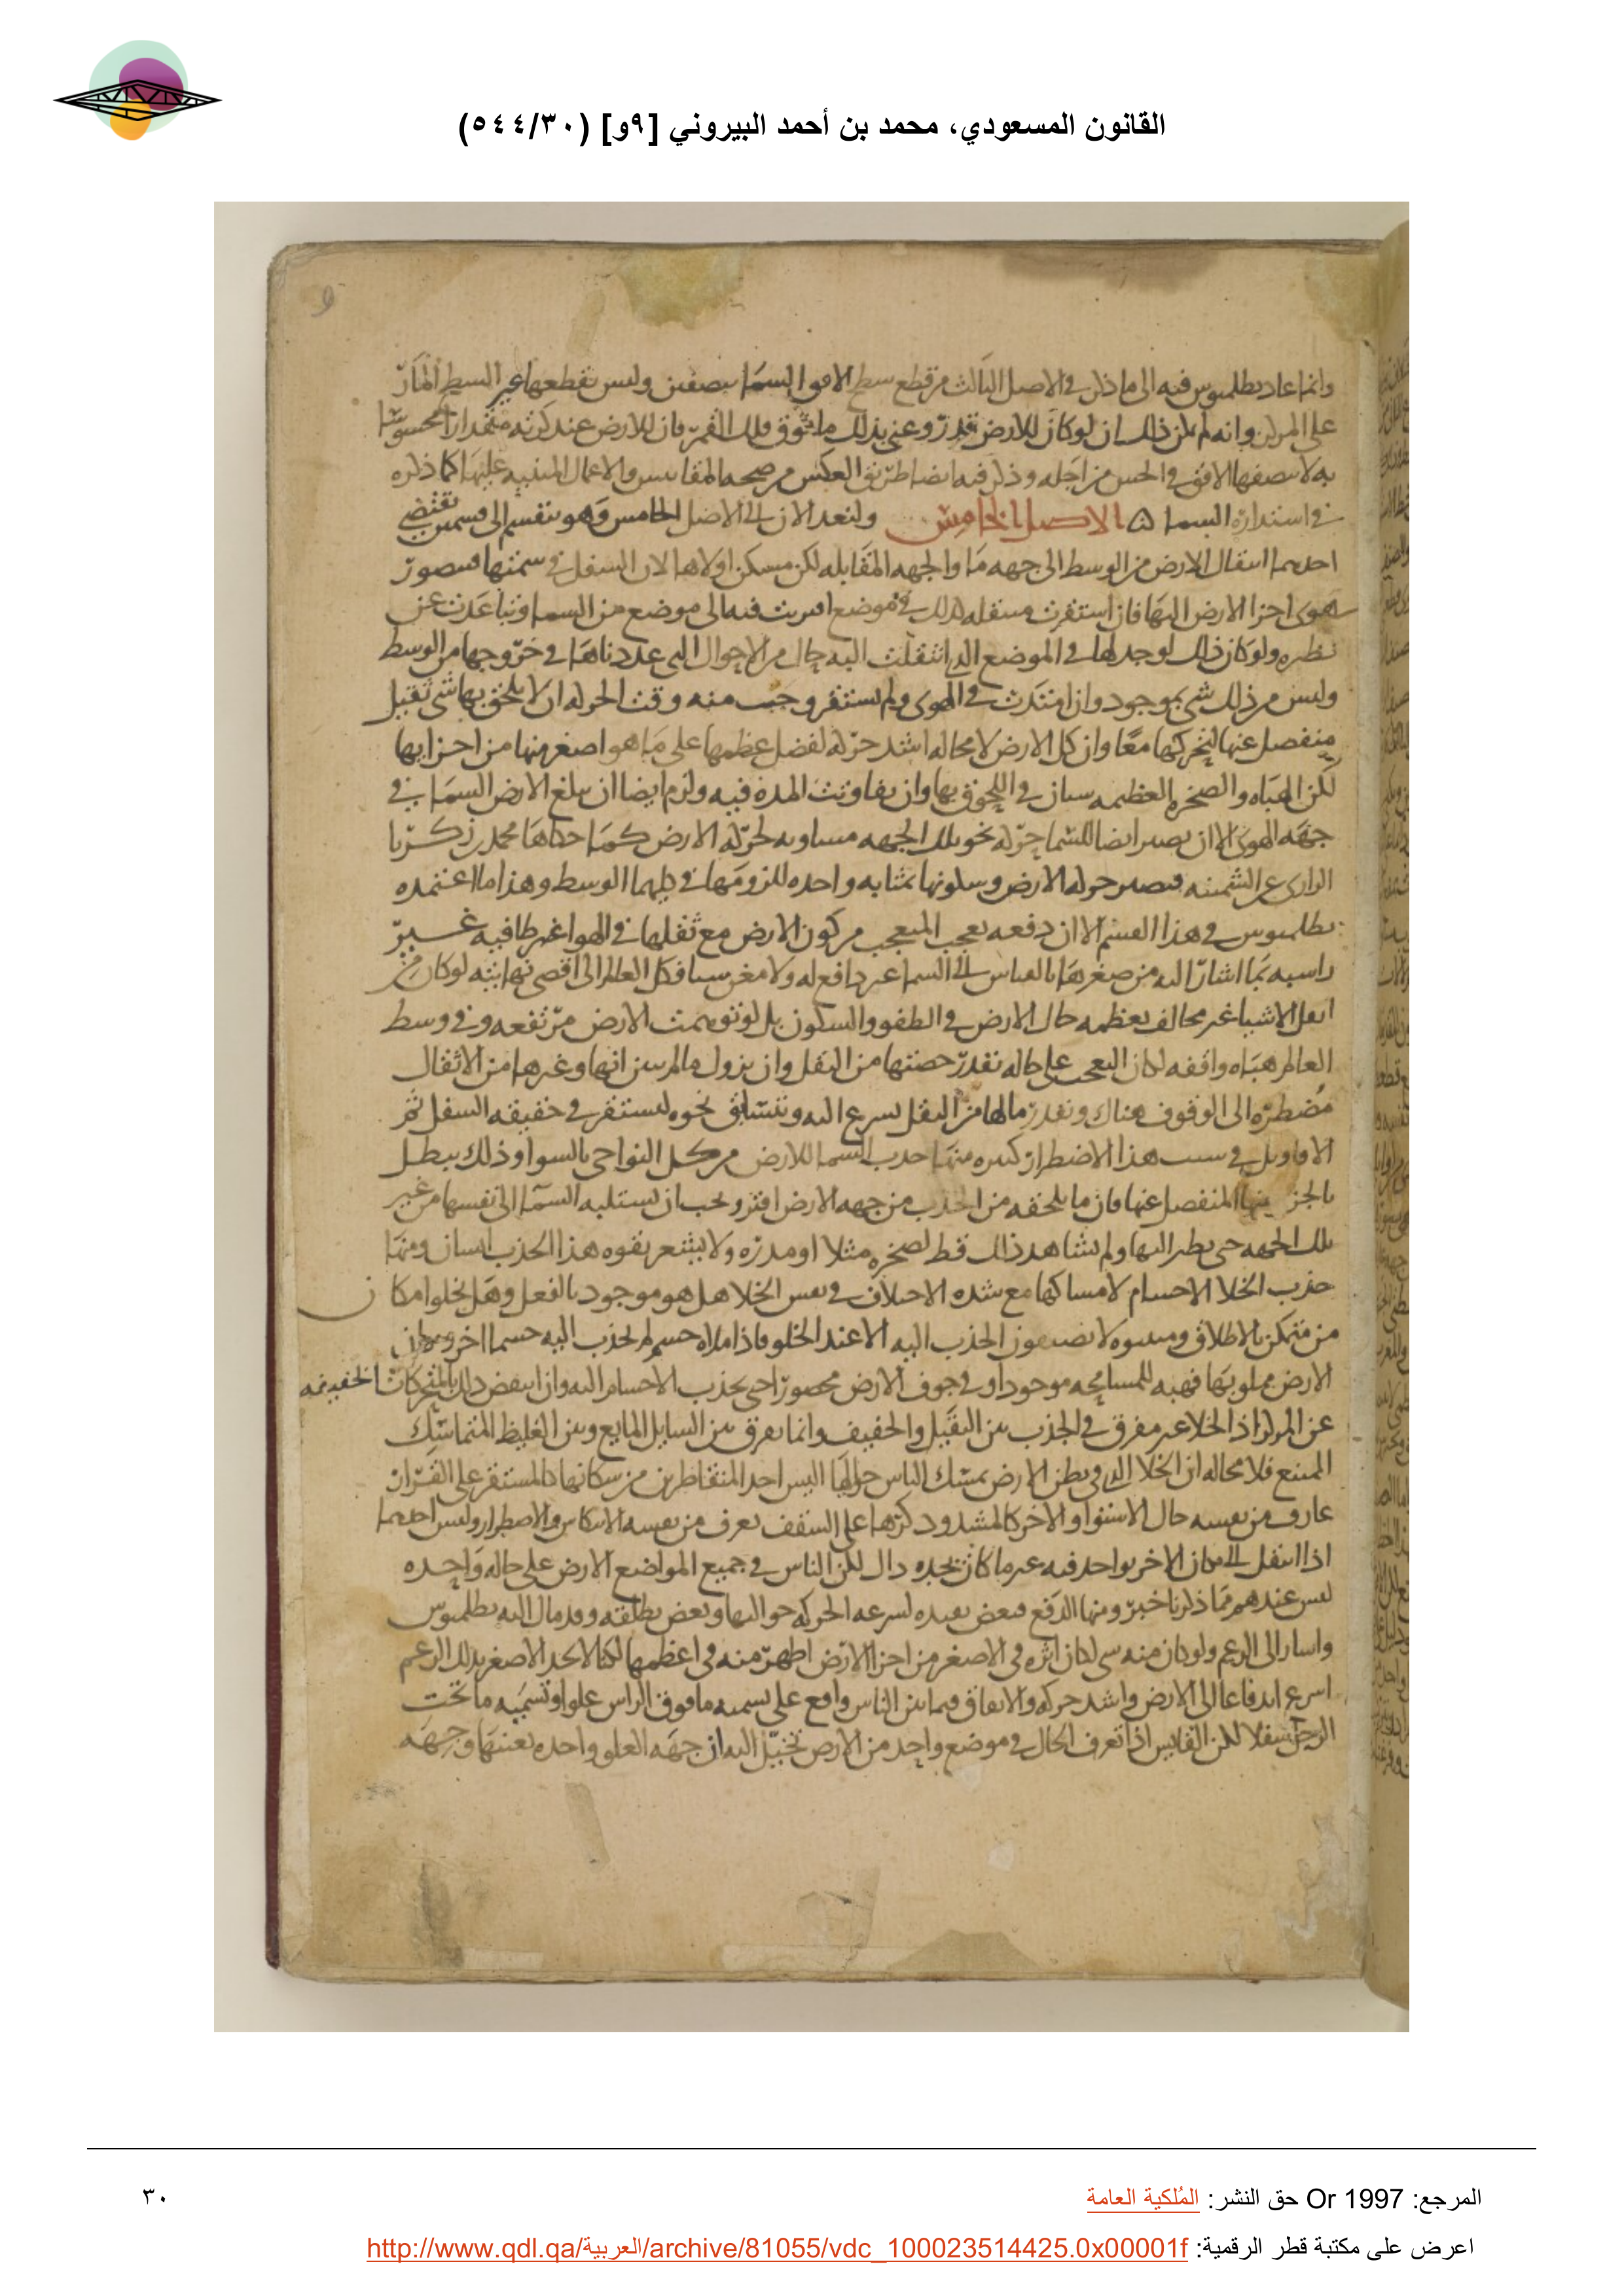 القانون المسعودي، محمد بن أحمد البيروني [٩و] (٥٤٤/٣٠)
٩
وانما عاد بطلميوس فيه الى ما ذكر في الاصل الثالث من قطع سطح الافق السما بنصفين وليس يقطعها غير البسيط المار
على المركز وانه لم يكن ذلك ان لو كان للارض قدر وعنى بذلك ما فوق فلك القمر فان للارض عند كرته مقدارا محسوسا
به لا ينصفها الافق في الحس من اجله وذكر فيه ايضا طريق العكس من صحه المقاييس والاعمال المبنيه عليها كما ذكره
في استدارة السما ۞ الاصل الخامس ولنعد الان الى الاصل الخامس وهو ينقسم الى قسمين يقتضي
احدهما انتقال الارض من الوسط الى جهه ما والجهه المقابله لكن مسكن اولاها لان السفل في سمتها فيصور
هوى اجزا الارض اليها فان استقرت منتقله كذلك في موضع اقتربت فيه الى موضع من السما وتباعدت عن
نظيره ولو كان ذلك لوجد لها في الموضع الذي انتقلت اليه حال من الاحوال التي عددناها في خروجها من الوسط
وليس من ذلك شي بموجود وان امتدت في الهوى ولم تستقر وجب منه وقت الحركه ان لا يلحق بها شي ثقيل
منفصل عنها لتحركها معا وان كل الارض لا محاله اشد حركه لفضل عظمها على ما هو اصغر منها من اجزايها
لكن الهباه والصخره العظيمه سيان في اللحوق بها وان تفاوتت المده فيه ولزم ايضا ان تبلغ الارض السما في
جهه الهوى الا ان يصير ايضا للسما حركه نحو تلك الجهه مساويه لحركه الارض كما حكاها محمد بن زكريا
الرازي عن السمنيه فيصير حركه الارض وسكونها بمثابه واحده للزومها في كليهما الوسط وهذا ما اعتمده
بطلميوس في هذا القسم الا ان دفعه تعجب المتعجب من كون الارض مع ثقلها في الهوا غير طافيه غير
راسبه بما اشار اليه من صغرها بالقياس الى السما غير دافع له ولا مغن شيا فكل العالم الى اقصى نهايته لو كان من
اثقل الاشيا غير مخالف بعظمه حال الارض في الطفو والسكون بل لو توهمت الارض مرتفعه وفي وسط
العالم هباه واقفه لكان التعجب على حاله بقدر حصتها من الثقل وان يزول ما لم يبين انها وغيرها من الاثقال
مضطره الى الوقوف هناك وبقدر ما لها من الثقل يسرع اليه ويتسابق نحوه ليستقر في حقيقه السفل ثم
الاقاويل في سبب هذا الاضطرار كثيره منها جذب السما للارض من كل النواحي بالسوا وذلك يبطل
بالجز منها المنفصل عنها فان ما يلحقه من الجذب من جهه الارض افتر ويجب ان تستلبه السما الى نفسها من غير
تلك الجهه حتى يطير اليها ولم يشاهد ذلك قط لصخره مثلا او مدره ولا يشعر بقوه هذا الجذب انسان ومنها
جذب الخلا الاجسام لامساكها مع شده الاختلاف في نفس الخلا هل هو موجود بالفعل وهل يخلوا مكان
من متمكن بالاطلاق ومثبتوه لا يضيفون الجذب اليه الا عند الخلو فاذا ملاه جسم لم يجذب اليه جسما اخر ومكان
الارض مملو بها فهبه للمسامحه موجودا وفي جوف الارض محصورا حتى يجذب الاجسام اليه وان انتقض ذلك بالمتحركات الخفيفه
عن المركز اذ الخلا غير مفرق في الجذب بين الثقيل والخفيف وانما يفرق بين السايل المايع وبين الغليظ المتماسك
الممتنع فلا محاله ان الخلا الذي في بطن الارض يمسك الناس حواليها اليس احد المتقاطرين من سكانها كالمستقر على القرار
عارف من نفسه حال الاستوا والاخر كالمشدود كرها على السقف يعرف من نفسه الانتكاس والاضطرار وليس احدهما
اذا انتقل الى مكان الاخر بواجد فيه غير ما كان يجده ذاك لكن الناس في جميع المواضع الارض على حاله واحده
ليس عندهم مما ذكرنا خبر ومنها الدفع فبعض يفيده لسرعه الحركه حواليها وبعض يطلقه وقد مال اليه بطلميوس
واشار الى الزعم ولو كان منه شي لكان اثره في الاصغر من اجزا الارض اظهر منه في اعظمها لكنا لا نجد الاصغر بذلك الزعم
اسرع اندفاعا الى الارض واشد حركه والاتفاق فيما بين الناس واقع على تسميه ما فوق الراس علوا وتسميه ما تحت
الرجل سفلا لكن القايس اذا تعرف الحال في موضع واحد من الارض تخيل اليه ان جهه العلو واحده بعينها وجهه
المرجع: Or 1997 حق النشر: المُلكية العامة
٣٠
اعرض على مكتبة قطر الرقمية: http://www.qdl.qa/العربية/archive/81055/vdc_100023514425.0x00001f